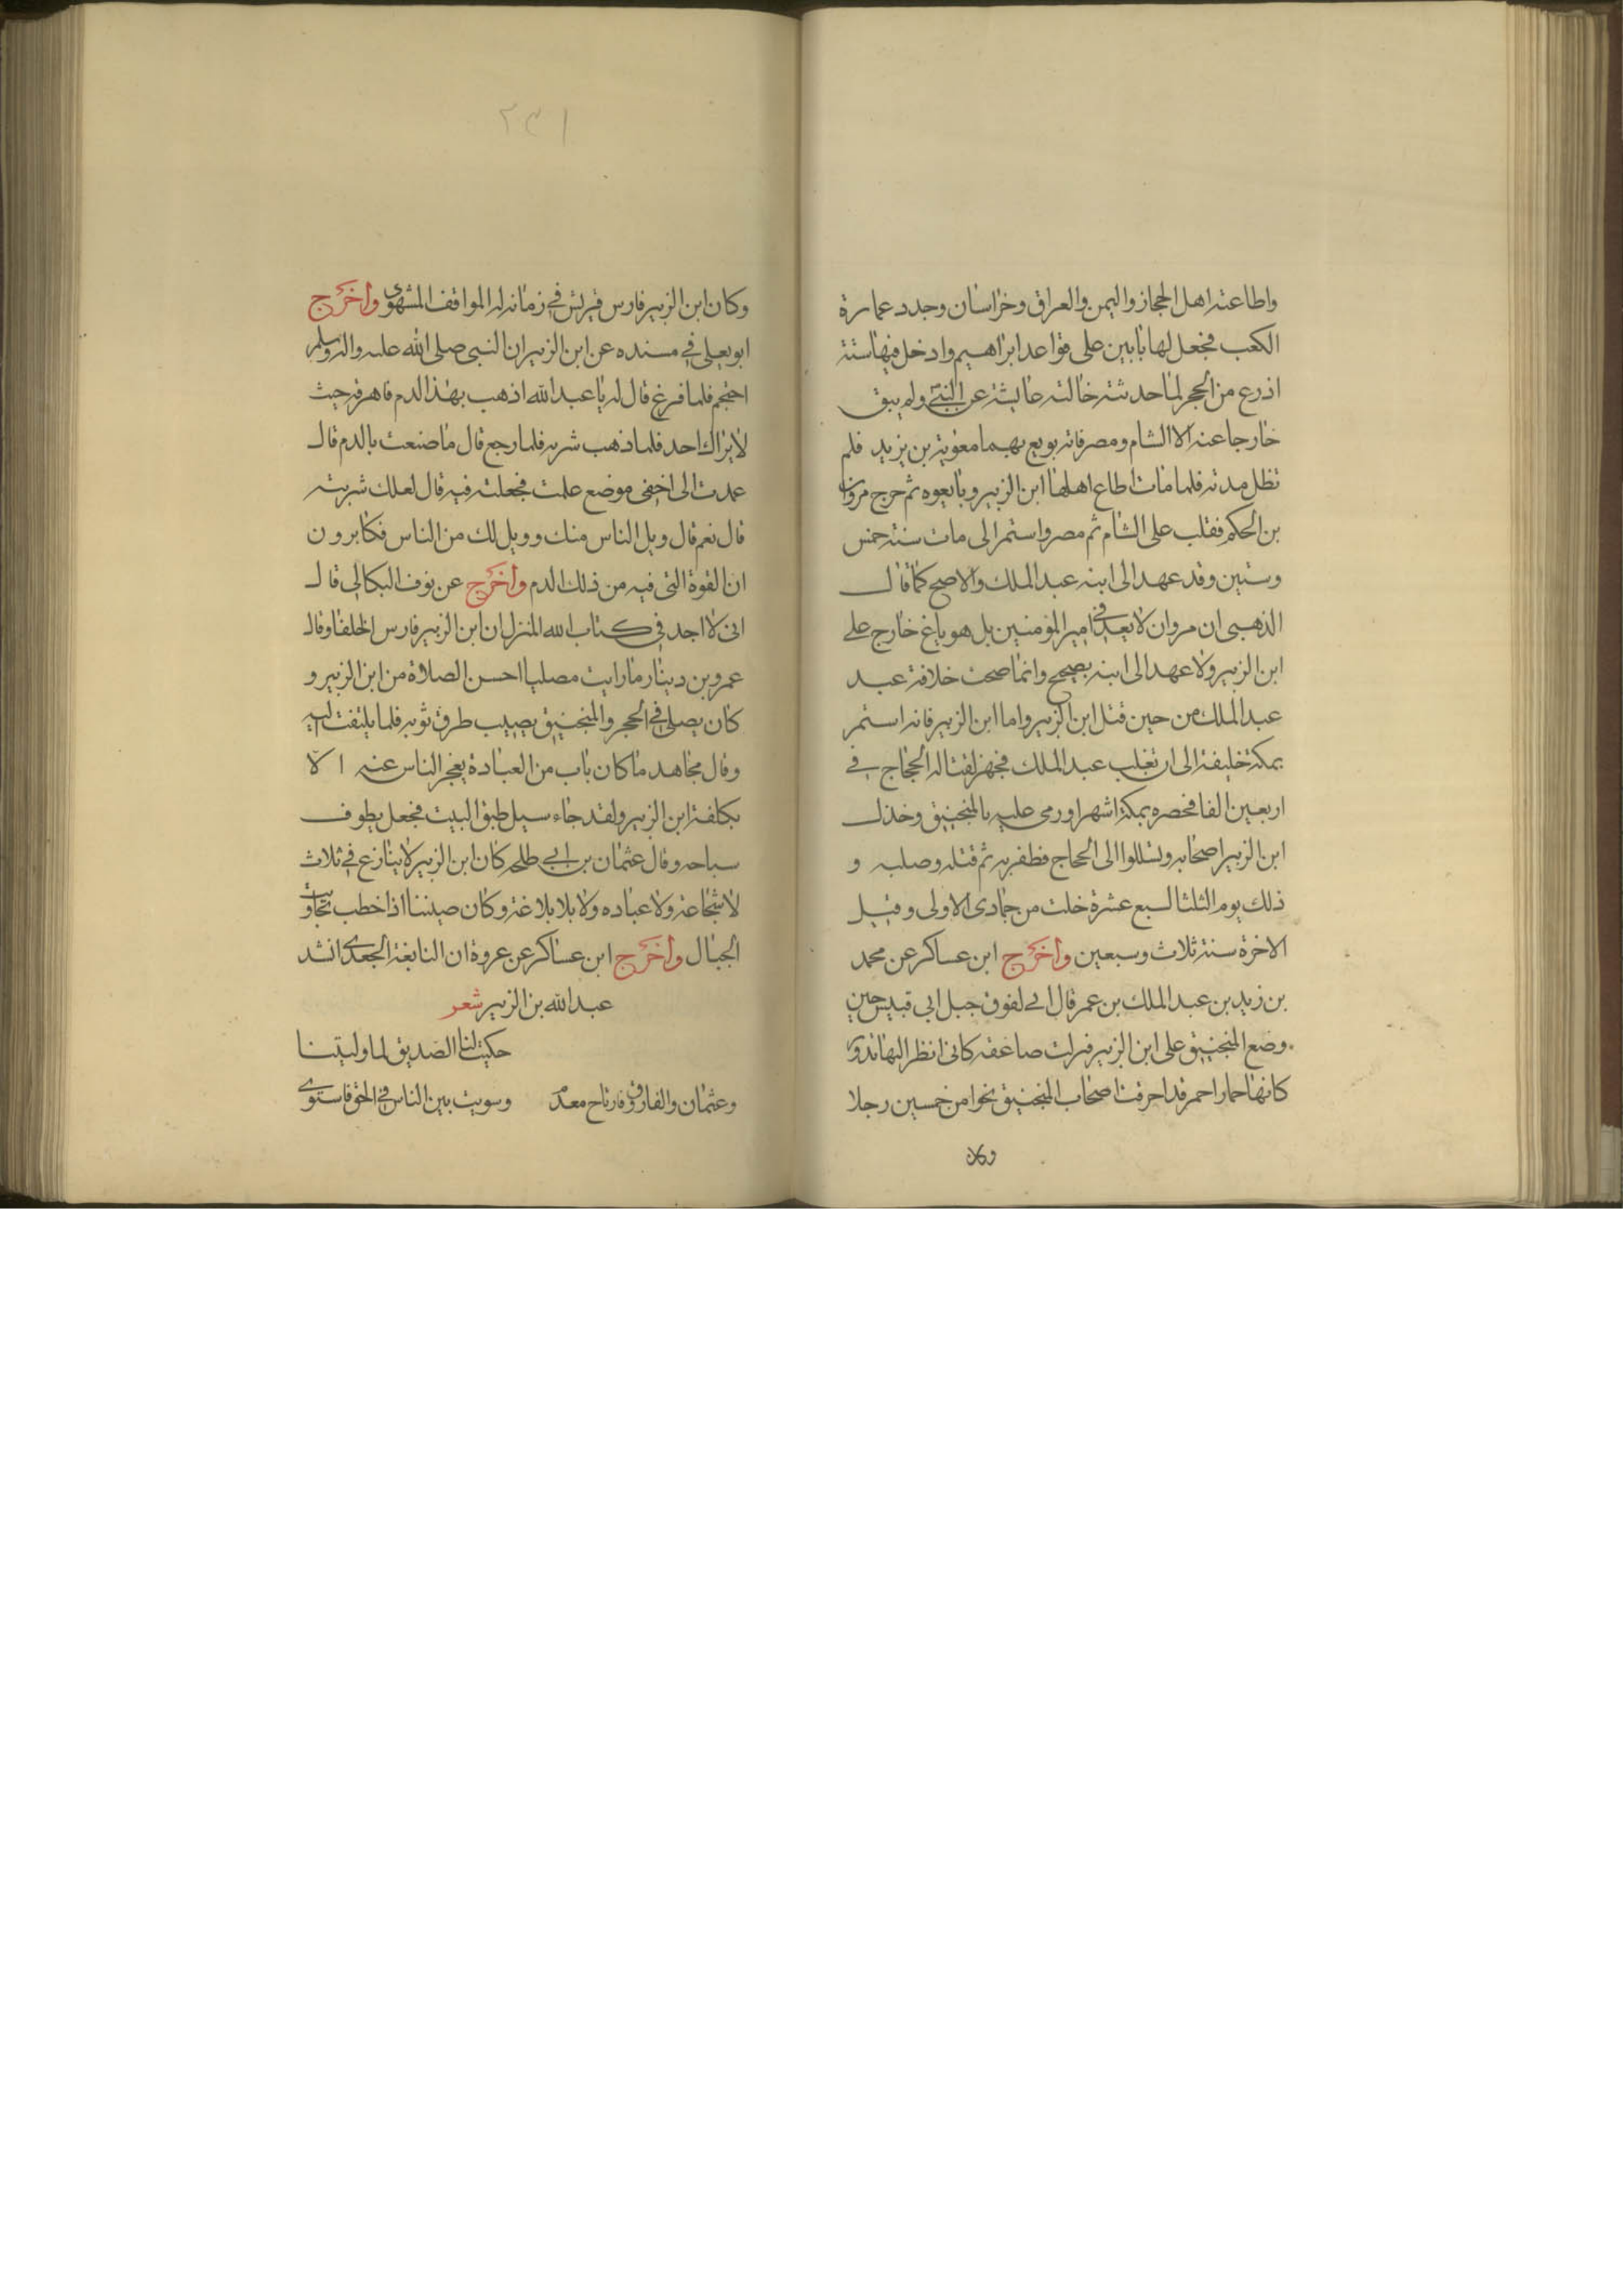 واطاعته اهل الحجاز واليمن والعراق وخراسان وجدد عمارة
الكعب فجعل لها بابين على قواعد ابراهيم وادخل فيها ستة
اذرع من الحجر لما حدثته خالته عايشة عن النبي ولم يبق
خارجا عنه الا الشام ومصر فانه بويع بهما معوية بن يزيد فلم
تظل مدته فلما مات اطاع اهلها ابن الزبير وبايعوه ثم خرج مروان
بن الحكم فغلب على الشام ثم مصر واستمر الى مات سنة خمس
وستين وقد عهد الى ابنه عبد الملك والاصح كما قال
الذهبي ان مروان لا يعد في امير المؤمنين بل هو باغ خارج على
ابن الزبير ولا عهد الى ابنه بصحيح وانما صحت خلافة عبد
عبد الملك من حين قتل ابن الزبير واما ابن الزبير فانه استمر
بمكة خليفة الى ان تغلب عبد الملك فجهز لقتاله الحجاج في
اربعين الفا فحصره بمكة اشهرا ورمى عليه بالمنجنيق وخذل
ابن الزبير اصحابه وتسللوا الى الحجاج فظفر به ثم قتله وصلبه و
ذلك يوم الثلثا لسبع عشرة خلت من جمادى الاولى وقيل
الاخرة سنة ثلاث وسبعين واخرج ابن عساكر عن محمد
بن زيد بن عبد الملك بن عمر قال اني لفوق جبل ابي قبيس حين
وضع المنجنيق على ابن الزبير فنزلت صاعقة كاني انظر اليها تدور
كانها حمار احمر قد احرقت اصحاب المنجنيق نحوا من خمسين رجلا
وكان
٢٣١
وكان ابن الزبير فارس قريش في زمانه له المواقف المشهوى واخرج
ابو يعلى في مسنده عن ابن الزبير ان النبي صلى الله عليه واله وسلم
احتجم فلما فرغ قال له يا عبد الله اذهب بهذا الدم فاهرقه حيث
لا يراك احد فلما ذهب شربه فلما رجع قال ما صنعت بالدم قال
عمدت الى اخفى موضع علمت فجعلته فيه قال لعلك شربته
قال نعم قال ويل الناس منك وويل لك من الناس فكا برون
ان القوة التي فيه من ذلك الدم واخرج عن نوف البكالي قال
اني لا اجد في كتاب الله المنزل ان ابن الزبير فارس الخلفا وقال
عمرو بن دينار ما رايت مصليا احسن الصلاة من ابن الزبير و
كان يصلي في الحجر والمنجنيق يصيب طرف ثوبه فلما يلتفت اليه
وقال مجاهد ما كان باب من العبادة يعجز الناس عنه الا
تكلفة ابن الزبير ولقد جاء سيل طبق البيت فجعل يطوف
سباحه وقال عثمان بن ابي طلحه كان ابن الزبير لا ينازع في ثلاث
لا شجاعة ولا عباده ولا بلا بلاغة وكان صيننا اذا خطب تجاوبت
الجبال واخرج ابن عساكر عن عروة ان النابغة الجعدي انشد
عبد الله بن الزبير شعر
حكيت لنا الصديق لما وليتنا
وعثمان والفاروق فارتاح معدم وسويت بين الناس في الحق فاستوى